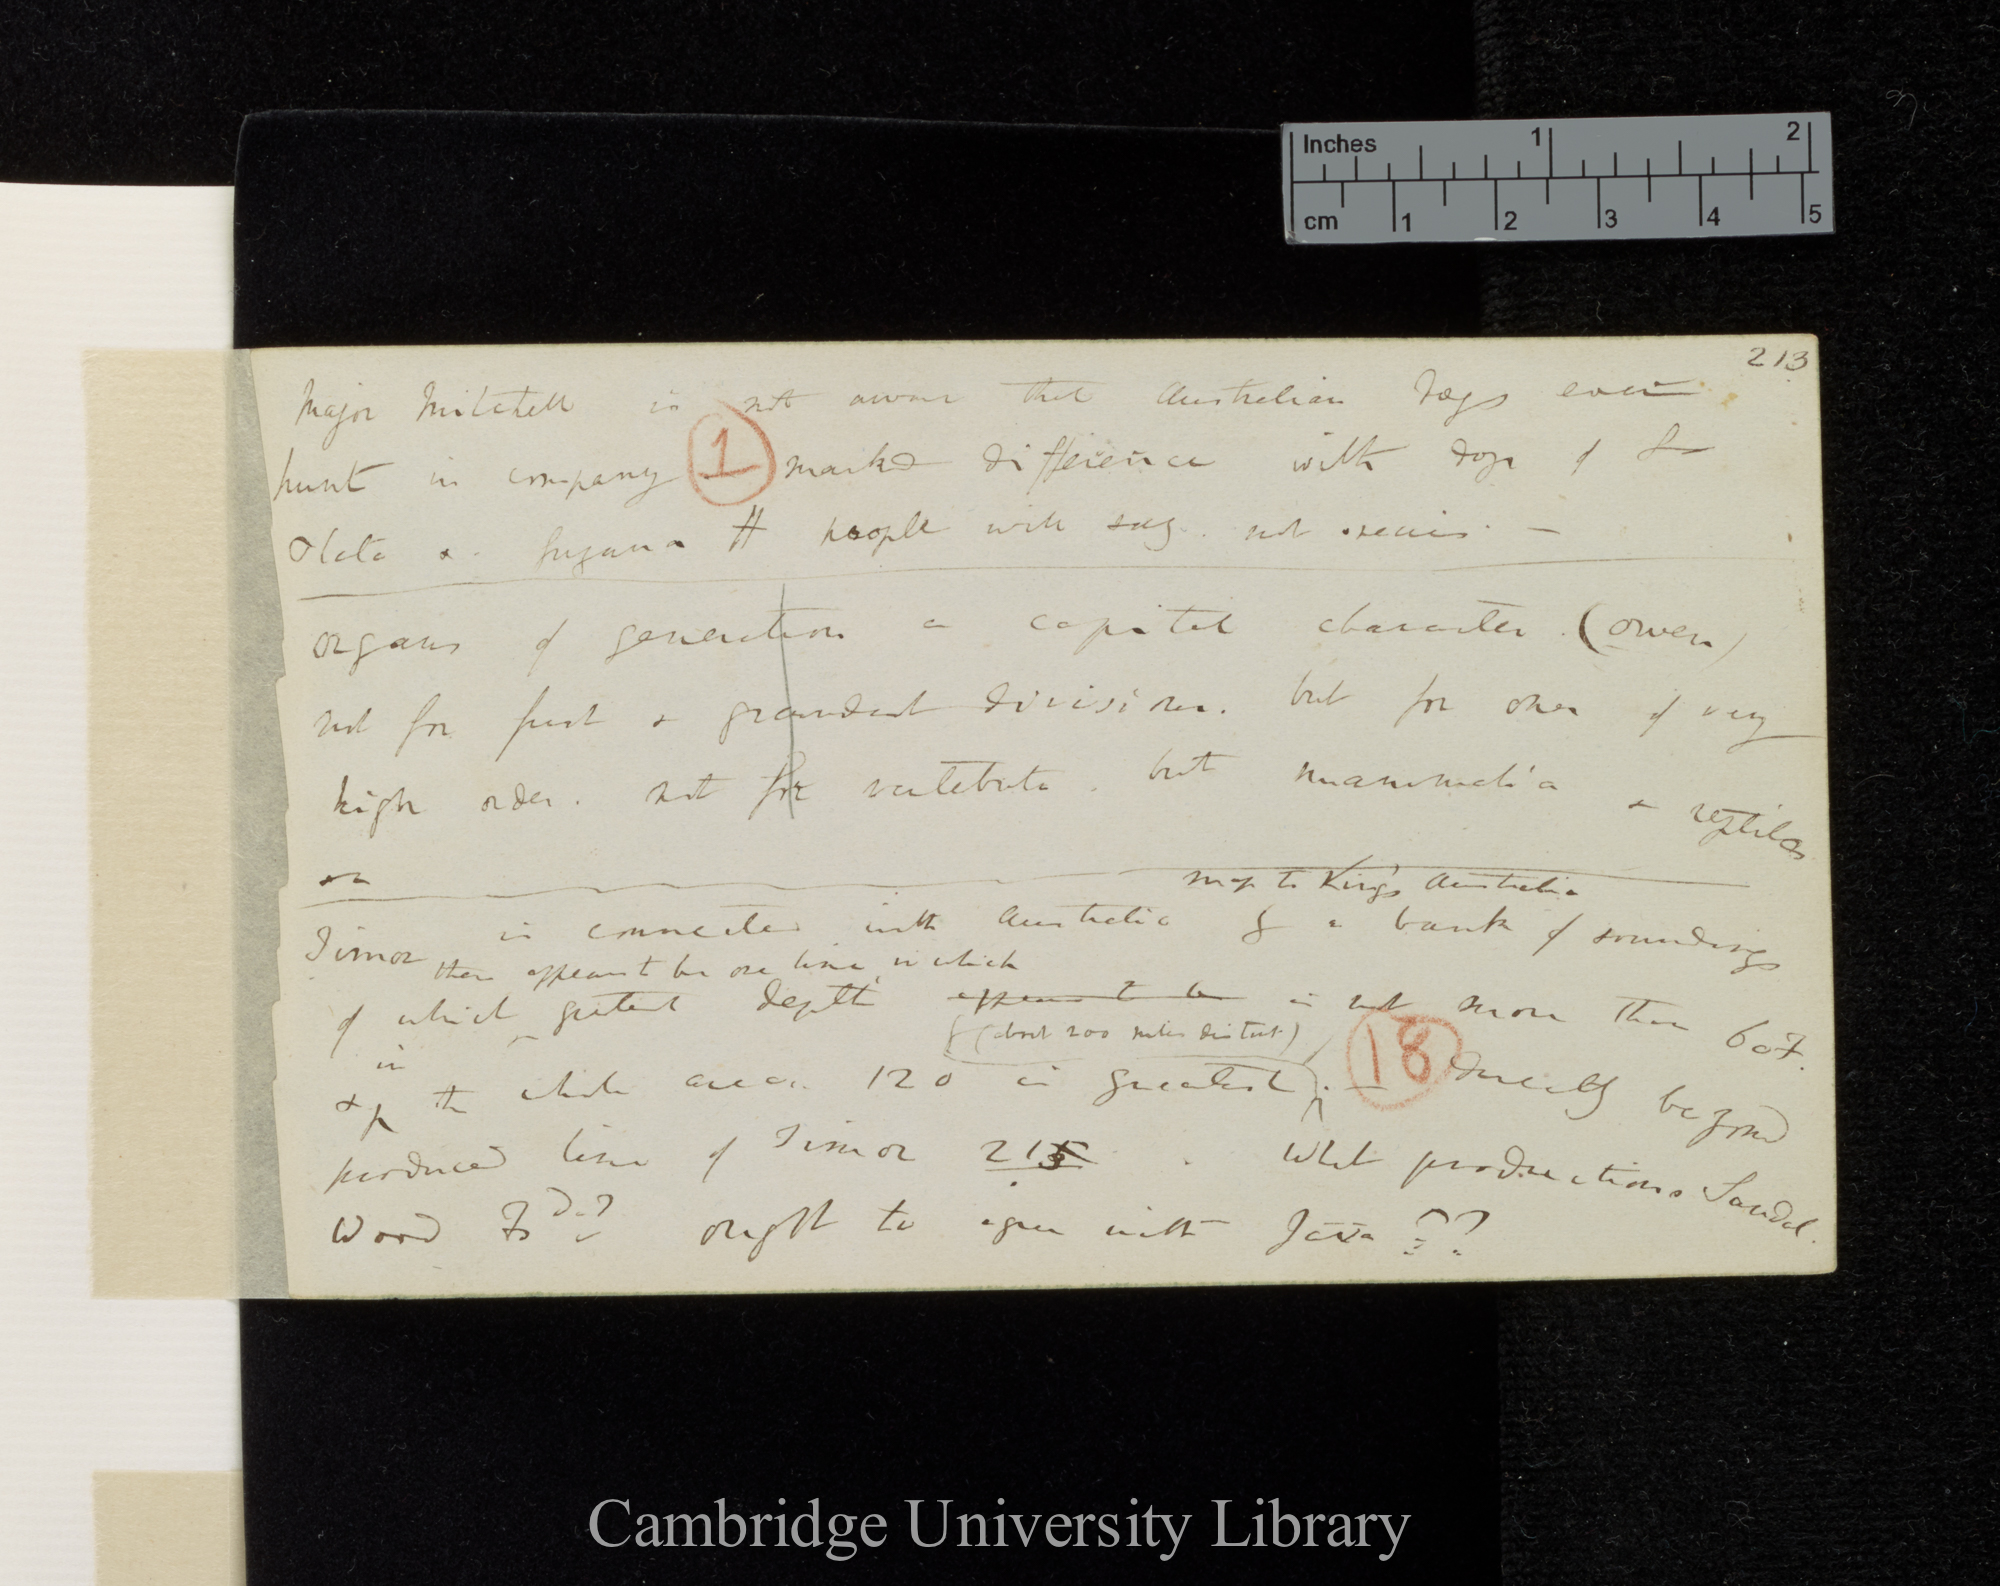 Inches 1 2
cm 1 2 3 4 5
213
Major Mitchell is not aware that Australian dogs ever
hunt in company 1 marked difference with dogs of La
Plata & Guyana # people will say. not species. —
organs of generation a capital character. (Owen)
not for first & grandest divisions. but for ones of very
high order. not for vertebrata. but mammalia & reptiles
&c
map to King's Australia
Timor is connected with Australia by a bank of soundings
there appears to be one line in which
of which greatest depth appears to be is not more than 60f.
(about 200 miles distant)
in
& the whole area. 120 is greatest. — 18 Directly beyond
produced line of Timor 215. What productions Sandal.
Wood Isd.? ought to agree with Java??
Cambridge University Library